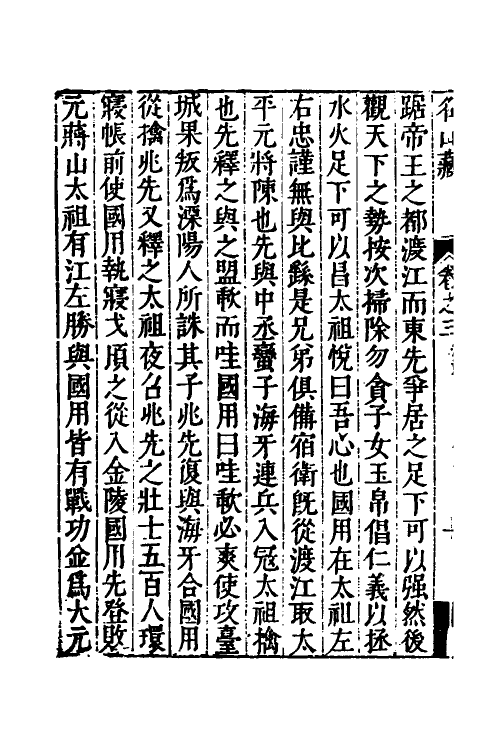 名山藏 卷之三
踞帝王之都渡江而東先爭居之足下可以强然後
觀天下之勢按次掃除勿貪子女玉帛倡仁義以拯
水火足下可以昌太祖悅曰吾心也國用在太祖左
右忠謹無與比繇是兄弟俱備宿衛既從渡江取太
平元將陳也先與中丞蠻子海牙連兵入冦太祖擒
也先釋之與之盟歃而哇國用曰哇歃必爽使攻臺
城果叛爲溧陽人所誅其子兆先復與海牙合國用
從擒兆先又釋之太祖夜召兆先之壯士五百人環
寢帳前使國用執寢戈頃之從入金陵國用先登敗
元蔣山太祖有江左勝與國用皆有戰功金爲大元